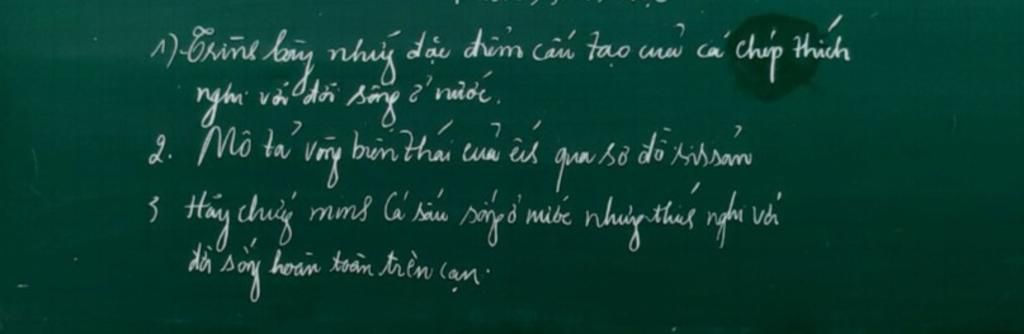 1) Trình bày những đặc điểm cấu tạo của cá chép thích
nghi với đời sống ở nước.
2. Mô tả vòng biến thái của ếch qua sơ đồ sinh sản
3 Hãy chứng minh Cá sấu sống ở nước nhưng thích nghi với
đời sống hoàn toàn trên cạn.